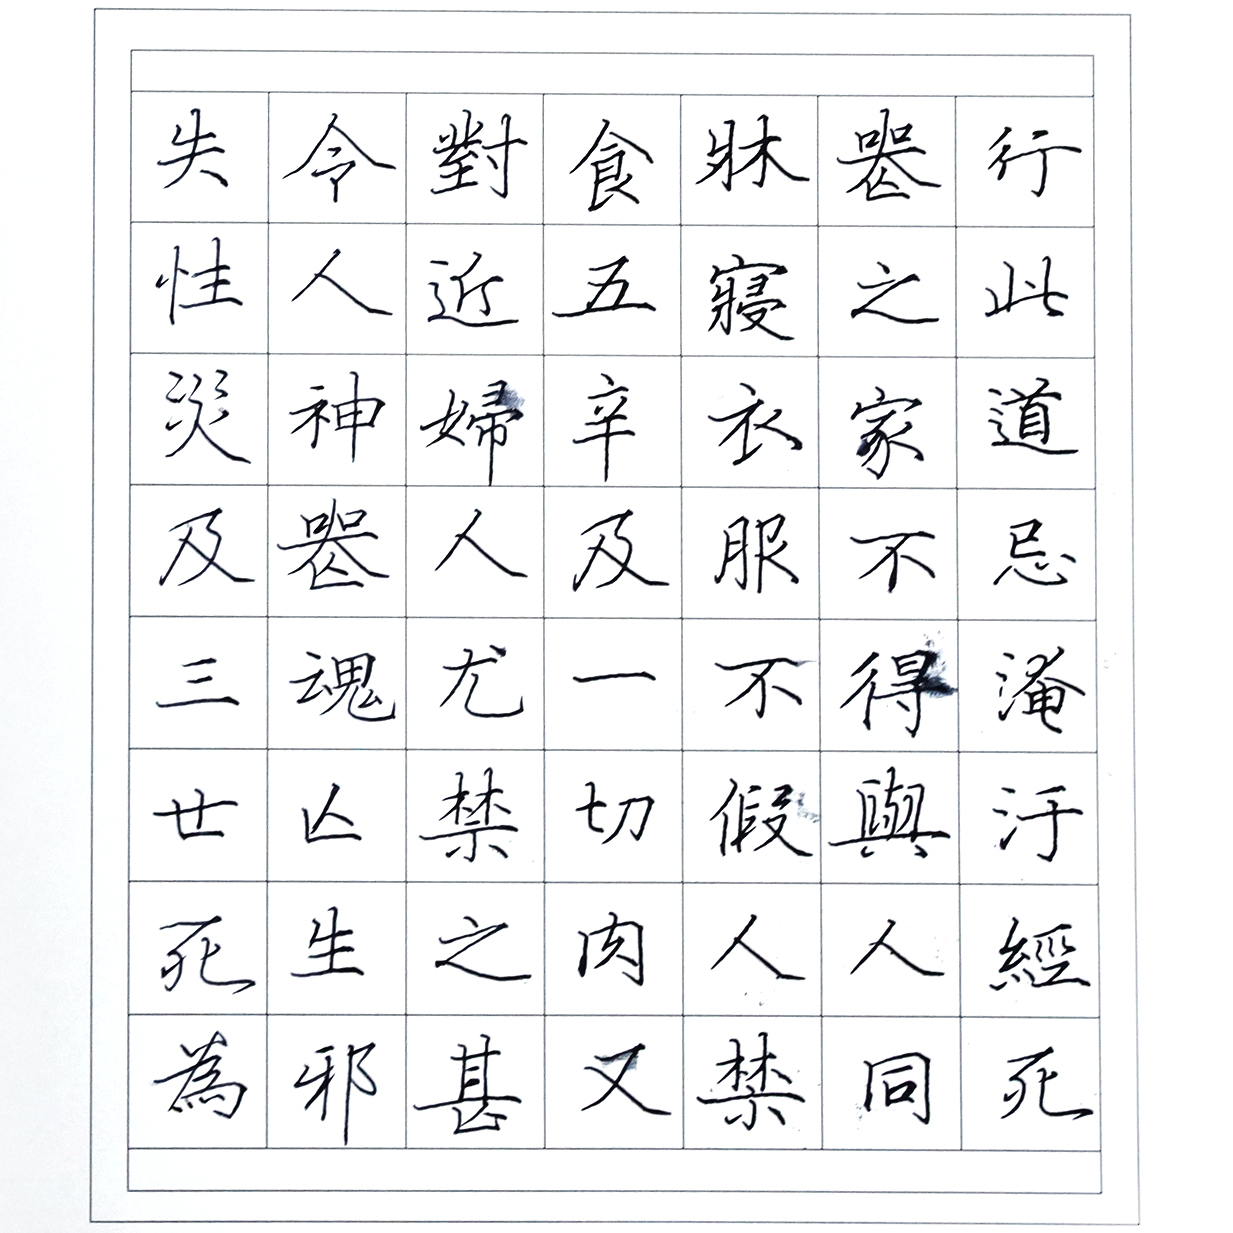 行此道忌淹汙經死
喪之家不得與人同
牀寢衣服不假人禁
食五辛及一切肉又
對近婦人尤禁之甚
令人神喪魂亾生邪
失性災及三世死為